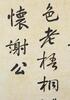 色老梧桐
懷謝公